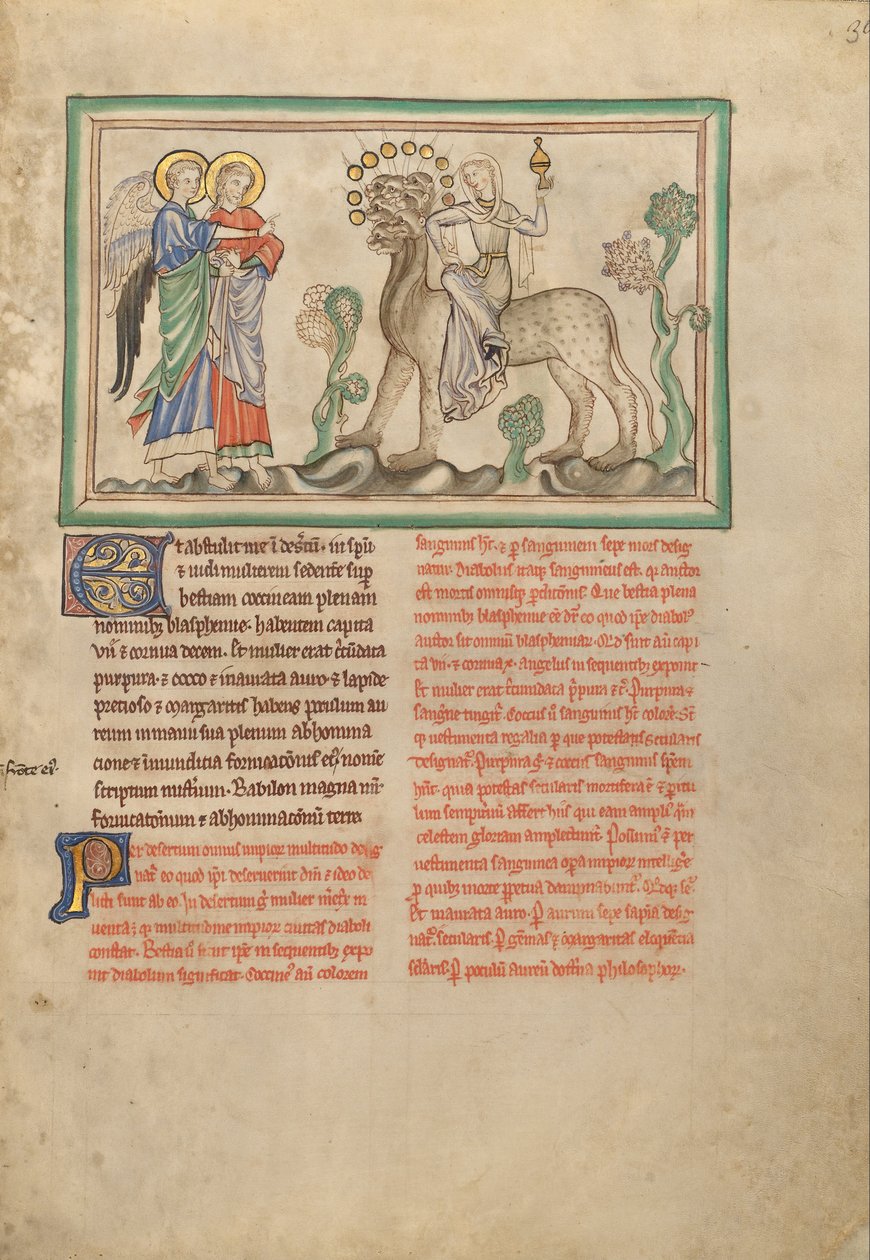 Et abstulit me ī deſ̄tū. in ſpū
⁊ uidi mulierem ſedentē ſup̄
beſtiam coccineam plenam
nominibꝫ blaſphemie. habentem capita
vii. ⁊ cornua decem. Et mulier erat c̄cūdata
purpura. ⁊ cocco ⁊ inaurata auro. ⁊ lapide
precioſo ⁊ margaritis habens poculum au
reum in manu ſua plenum abhomina
cione ⁊ inmundicia fornicacōnis eiꝰ.
fronte eiꝰ.
ſcriptum miſteriū. Babilon magna mr̄
fornicatonum ⁊ abhominaconū terre
Per deſertum omnis impioꝝ multitudo deſig
nat᷑ eo quod ipſi deſeruerint dm̄ ⁊ ideo de
ſunt ab eo. In deſertum g̊ mulier
uenta ē. q multitudine impioꝝ ciuitas diaboli
conſtat. Beſtia ū ſicut ipſe in ſequentibꝫ expo
nit diabolum ſignificat. Coccineꝰ aū colorem
ſanguinis hꝫ. ⁊ ꝑ ſanguinem ſepe mors deſig
natur. Diabolus itaqꝫ ſanguineus eſt. qꝛ auctor
eſt mortis omniſqꝫ ꝑditionis. Que beſtia plena
nominibꝫ blaſphemie eē dr̄ eo quod ipſe diabolꝰ
auctor ſit omniū blaſphemiaꝝ. Qd̓ ſunt aū capi
ta vii. ⁊ cornua x. angelus in ſequentibꝫ exponit
Et mulier erat c̄cūdata p̄pura ⁊ c̄. Purpura
ſangͥne tingit᷑. Coccus ū ſanguinis hꝫ colorē. St̄
q̄ ueſtimenta regalia per que poteſtas ſecularis
deſignat᷑. Purpura g̊ ⁊ coccus ſanguinis ſpēm
hn̄t. quia poteſtas ſecularis mortifera ē ⁊ ꝑitu
lum ſempitnū affert hiis qui eam ampliꝰ qͣm
celeſtem gloriam amplectunt᷑. Poſſumꝰ ⁊ per
ueſtimenta ſanguinea oꝑa impioꝝ intellige̓
ꝑ quibꝫ morte ꝑpetua dampnabunt᷑.
Et inaurata auro. P aurum ſepe ſapīa deſig
nat᷑. ſecularis. P gēmas ⁊ margaritas eloquētia
ſclaris. P poculū aureū doctna philoſophoꝝ.